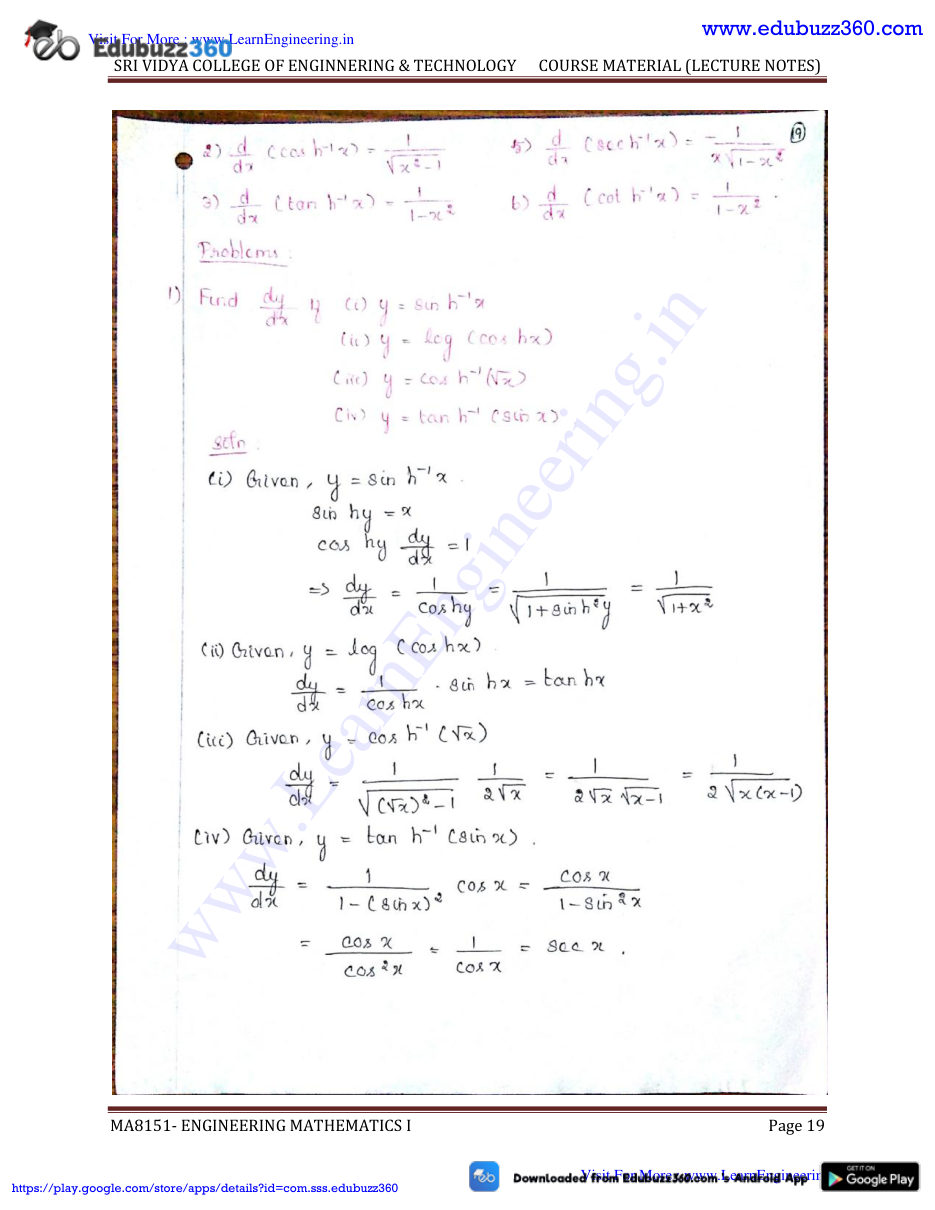 www.edubuzz360.com
Visit For More : www.LearnEngineering.in
Edubuzz360
SRI VIDYA COLLEGE OF ENGINNERING & TECHNOLOGY COURSE MATERIAL (LECTURE NOTES)
19
2) d/dx (cos h⁻¹x) = 1/√(x²-1) 5) d/dx (sec h⁻¹x) = -1/(x√(1-x²))
3) d/dx (tan h⁻¹x) = 1/(1-x²) 6) d/dx (cot h⁻¹x) = 1/(1-x²).
Problems :
1) Find dy/dx if (i) y = sin h⁻¹x
(ii) y = log (cos hx)
(iii) y = cos h⁻¹(√x)
(iv) y = tan h⁻¹ (sin x)
Soln :
(i) Given, y = sin h⁻¹x.
sin hy = x
cos hy dy/dx = 1
=> dy/dx = 1/cos hy = 1/√(1+sin h²y) = 1/√(1+x²)
(ii) Given, y = log (cos hx).
dy/dx = 1/cos hx . sin hx = tan hx
(iii) Given, y = cos h⁻¹ (√x)
dy/dx = 1/√((√x)²-1) 1/2√x = 1/(2√x √x-1) = 1/(2√x(x-1))
(iv) Given, y = tan h⁻¹ (sin x).
dy/dx = 1/(1-(sin x)²) . cos x = cos x/(1-sin²x)
= cos x/cos²x = 1/cos x = sec x.
www.LearnEngineering.in
MA8151- ENGINEERING MATHEMATICS I Page 19
https://play.google.com/store/apps/details?id=com.sss.edubuzz360
Downloaded from EduBuzz360.com 's Android App
Visit For More : www.LearnEngineerin
GET IT ON
Google Play